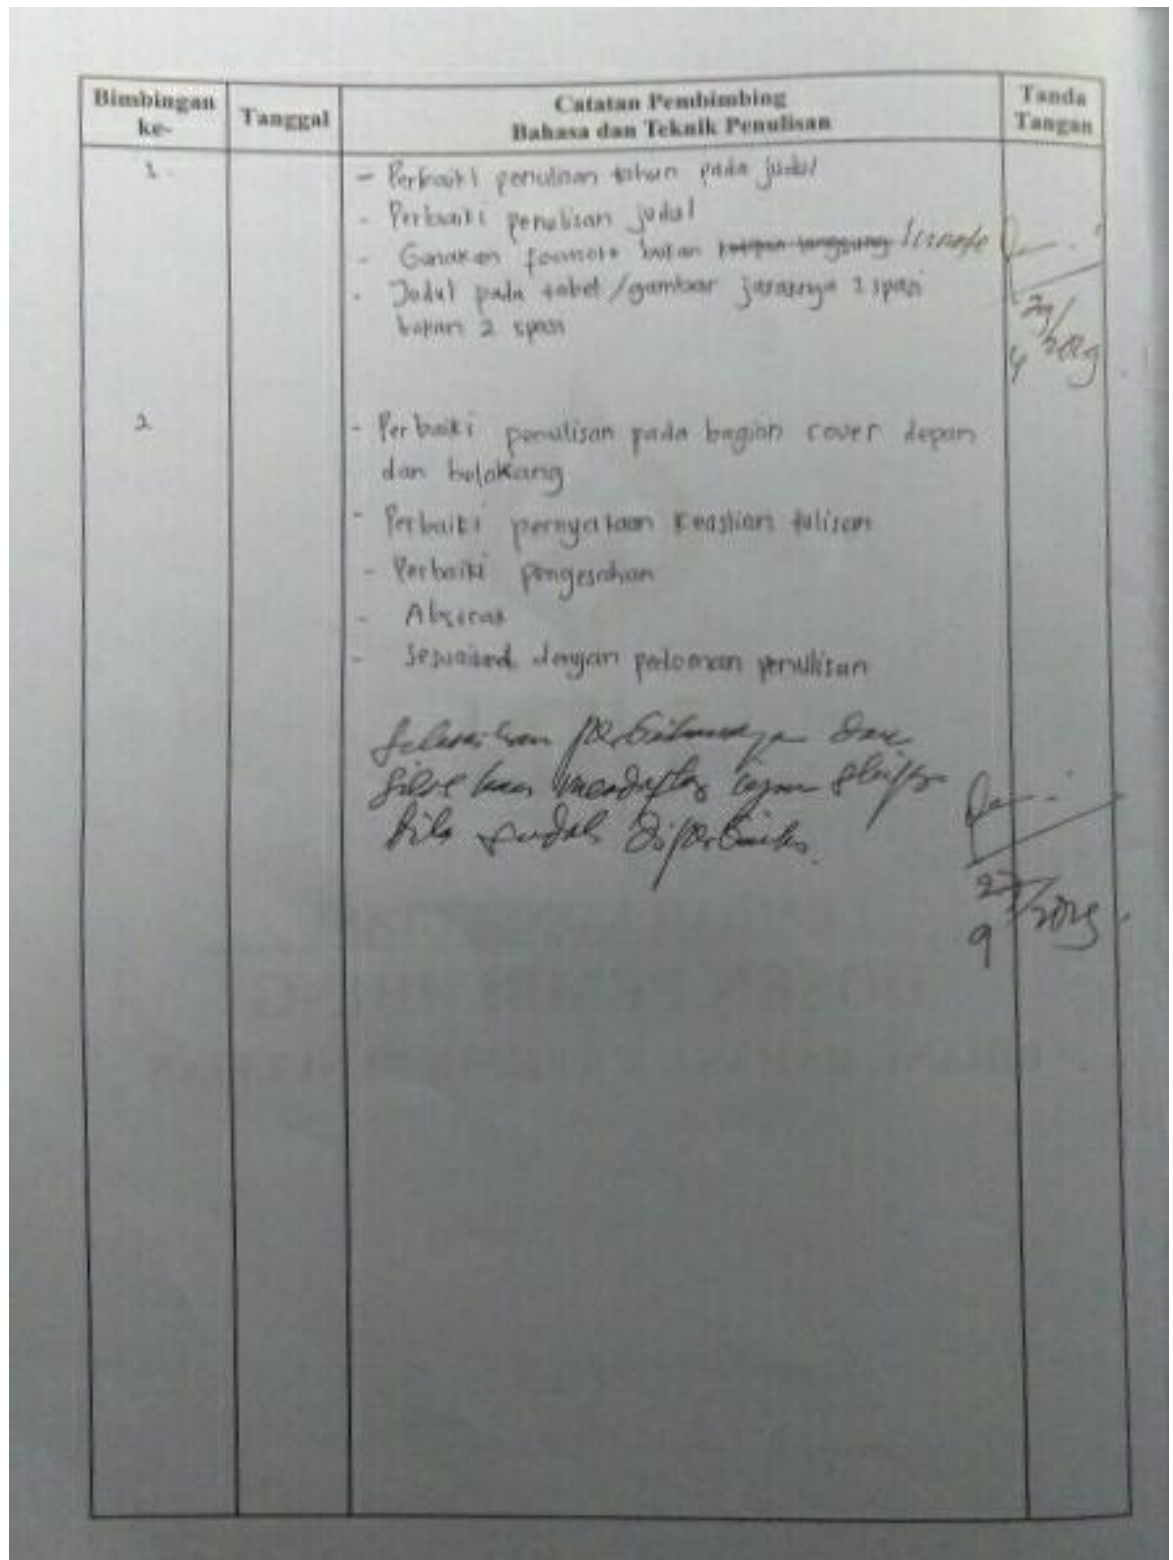 Bimbingan ke-
Tanggal
Catatan Pembimbing
Bahasa dan Teknik Penulisan
Tanda Tangan
1
- Perbaiki penulisan tahun pada judul
- Perbaiki penulisan judul
- Gunakan footnote bukan
- Judul pada tabel/gambar jaraknya 1 spasi
bukan 2 spasi
2
- Perbaiki penulisan pada bagian cover depan
dan belakang
- Perbaiki pernyataan keaslian tulisan
- Perbaiki pengesahan
- Abstrak
- Sesuaikan dengan pedoman penulisan
dan
bila sudah diperbaiki.
27
9